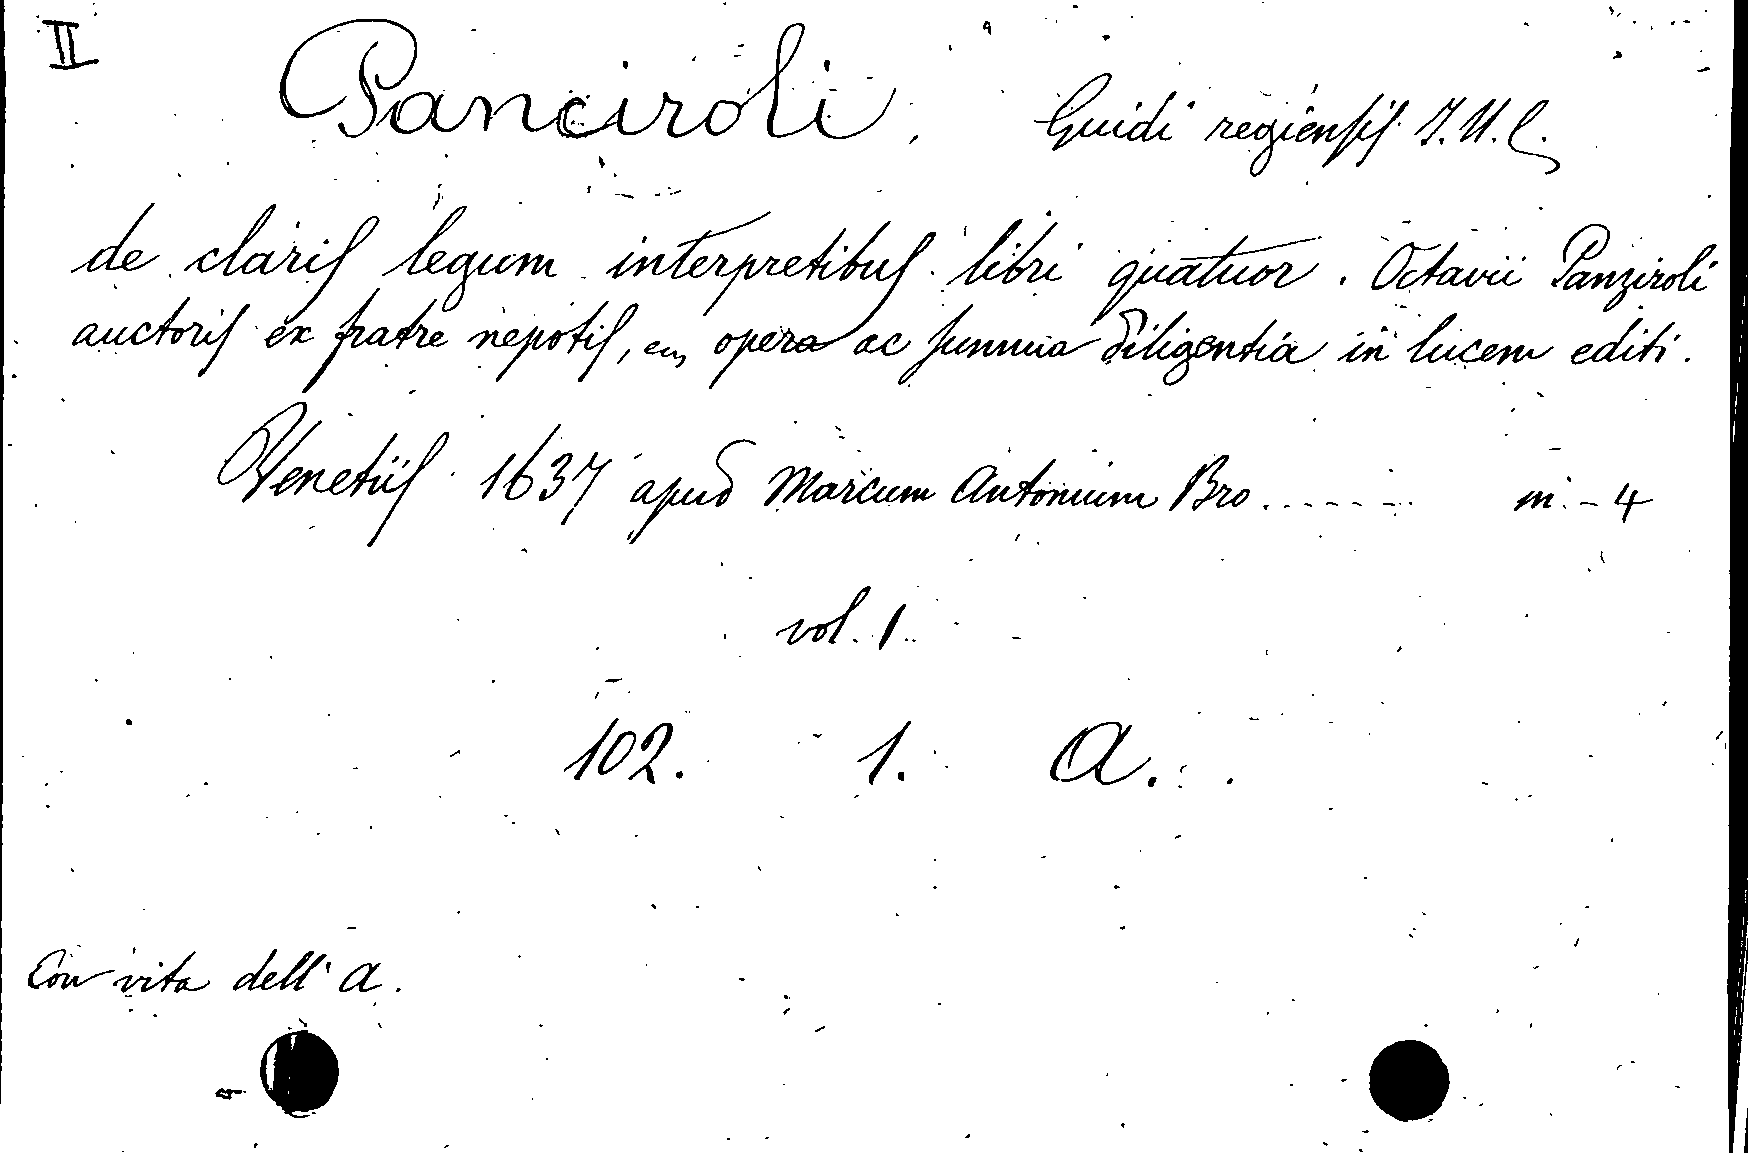 II
Panciroli, Guidi regiensis J. U. C.
de claris legum interpretibus libri quatuor. Octavii Panziroli
auctoris ex fratre nepotis, ex opera ac summa diligentia in lucem editi.
Venetiis 1637 apud Marcum Antonium Bro....... in - 4
vol. 1.
102. 1. A.
Con vita dell' A.